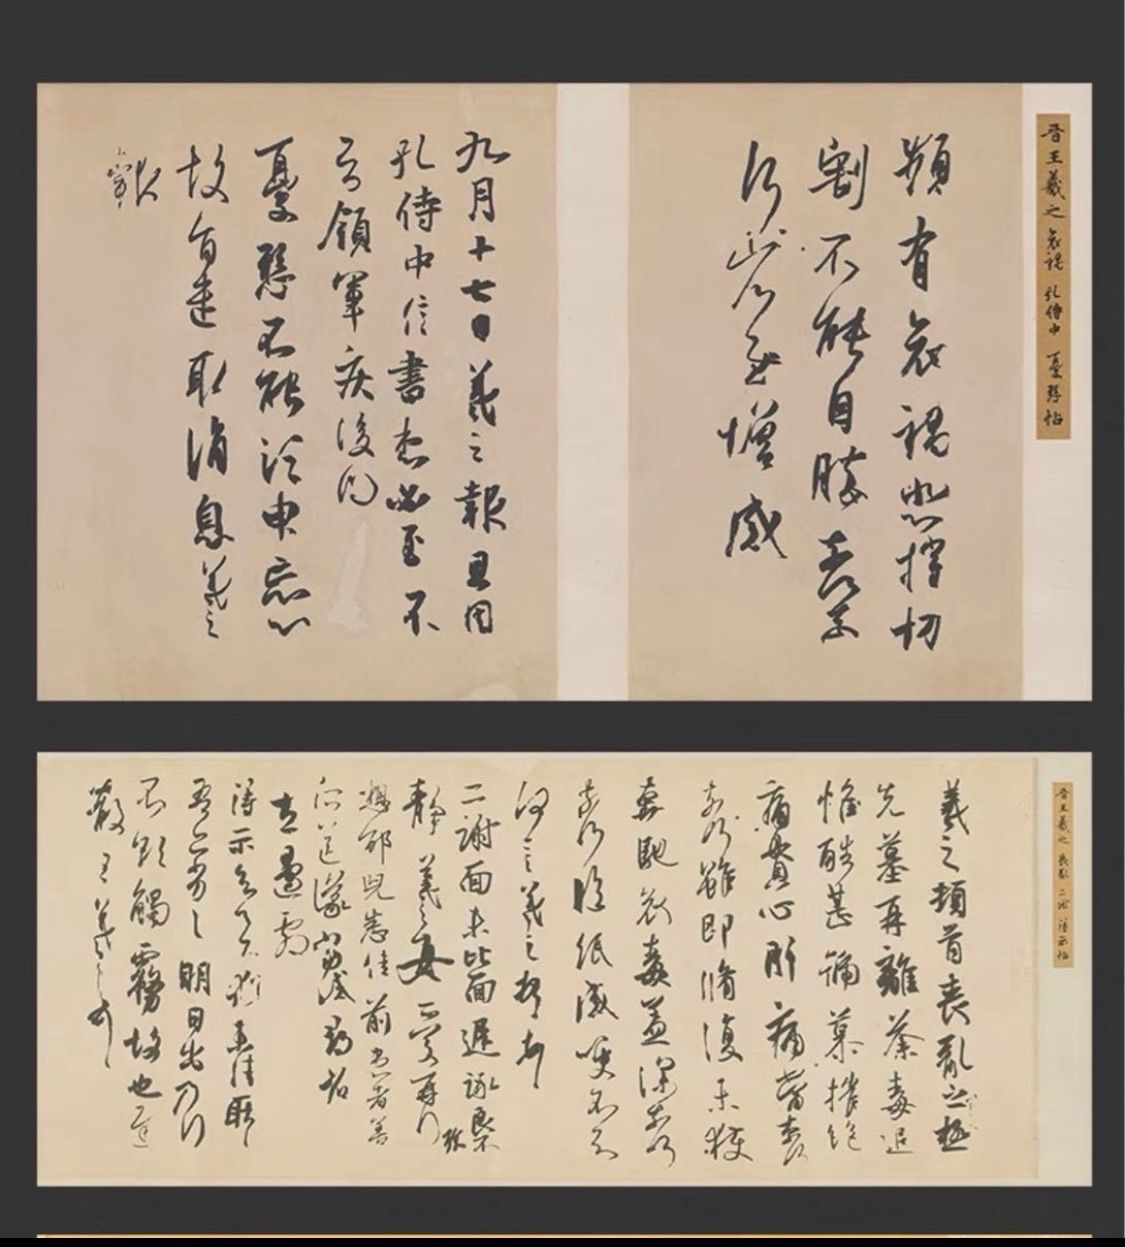 晋王羲之 哀禍 孔侍中 憂懸帖
頻有哀禍悲摧切
割不能自勝奈何奈
何省慰增感
九月十七日羲之報且因
孔侍中信書想必至不
知領軍疾後問
憂懸不能須臾忘心
故旨遣取消息羲之
報
晋王羲之 喪亂 二謝 得示帖
羲之頓首喪亂之極
先墓再離荼毒追
惟酷甚號慕摧絕
痛貫心肝痛當奈何
奈何雖即脩復未獲
奔馳哀毒益深奈何
奈何臨紙感哽不知
何言羲之頓首頓首
二謝面未比面遲詠良
靜羲之女愛再拜
想邵兒悉佳前患者善
所送議當試尋省
左邊劇
得示知足下猶未佳耿耿
吾亦劣劣明日出乃行
不欲觸霧故也遲
散王羲之頓首